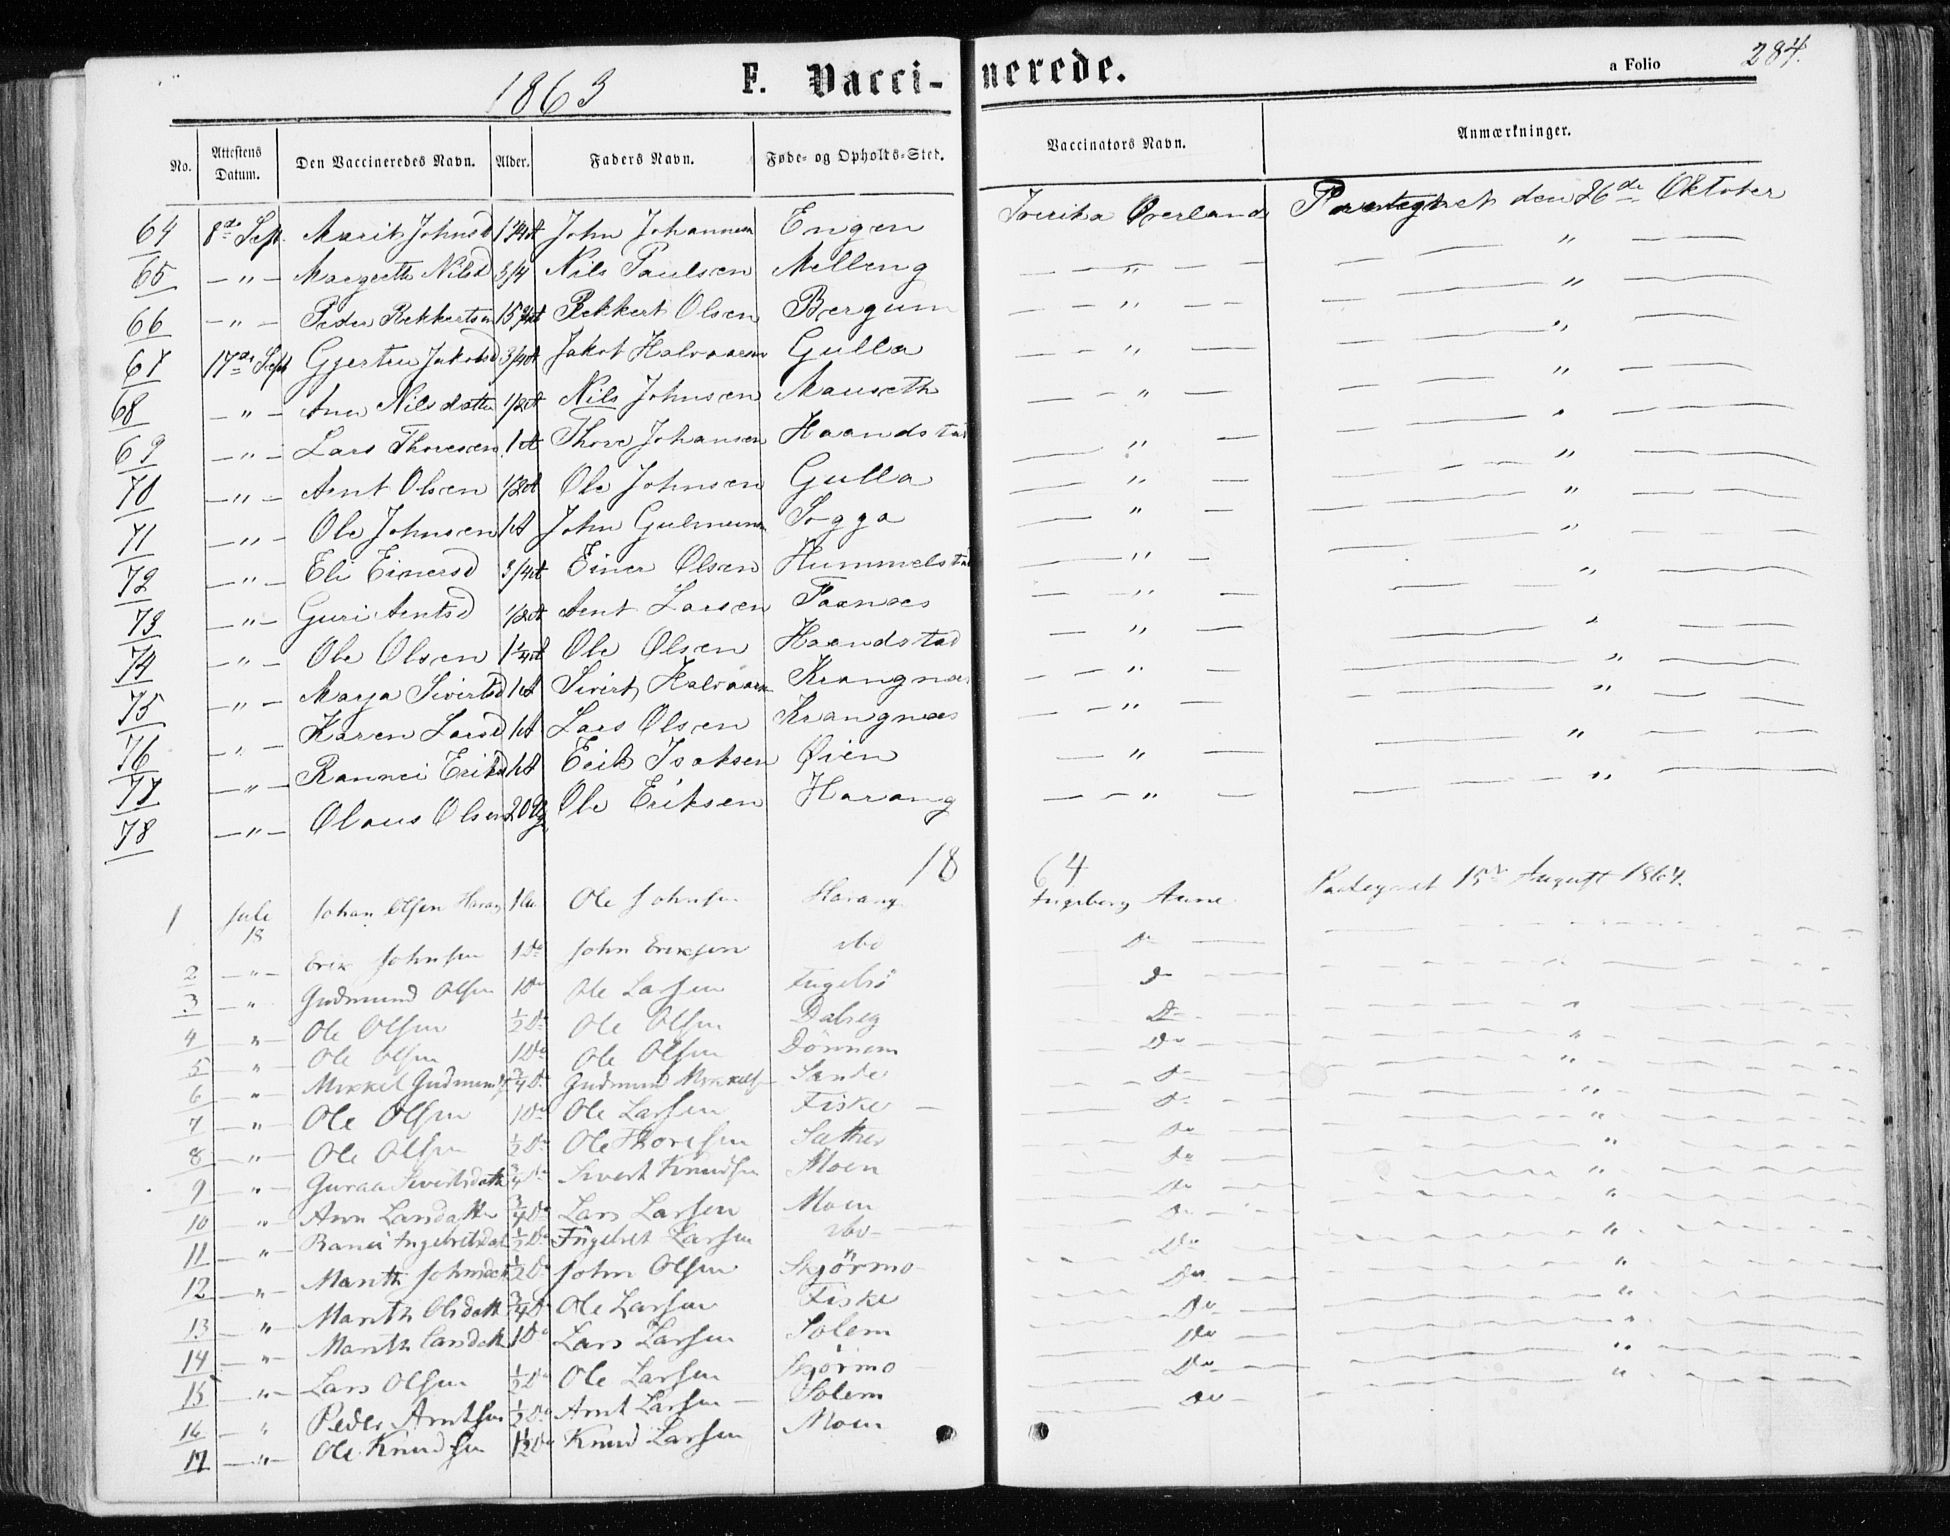 1863 F. Vaccinerede. a Folio 284.
No. Attestens Datum. Den Vaccineredes Navn. Alder. Faders Navn. Føde- og Opholds-Sted. Vaccinators Navn. Anmærkninger.
64 8de Sept. Marit Johnsd 1 1/4 A John Johannsen Engen Overland den 26de Oktober
65 — " — Margreth Nilsd 3/4 Nils Paulsen Melleng — " — — " —
66 — " — Peder Rekkertsen Rekkert Olsen Bergum — " — — " —
67 17de Sept Gjertru Jakobsd 3/4 A Jakob Halvaarsen Gulla — " — — " —
68 — " — Ane Nilsdatter 1/2 A Nils Johnsen Mauseth — " — — " —
69 — " — Lars Thoresen 1 A Thore Johansen Haandstad — " — — " —
70 — " — Arnt Olsen 1/2 A Ole Johnsen Gulla — " — — " —
71 — " — Ole Johnsen 1 A John Sogga — " — — " —
72 — " — Eli Einersd 3/4 A Einer Olsen Hummelstad — " — — " —
73 — " — Guri Arntsd 1/2 A Arnt Larsen — " — — " —
74 — " — Ole Olsen 1 1/4 A Ole Olsen Haandstad — " — — " —
75 — " — Marja Sivertsd 1 A Sivert Halvaarsen Krangnæs — " — — " —
76 — " — Karen Larsd 1 A Lars Olsen Krangnæs — " — — " —
77 — " — Rannei Eriksd 1 A Erik Isaksen Øien — " — — " —
78 — " — Olaus Olsen Ole Eriksen Harang — " — — " —
1864
1 Juli 18 Johan Olsen Harang 1 Aar Ole Johnsen Harang Ingeborg Aune 15de August 1864.
2 — " — Erik Johnsen 1 Do John Eriksen ibd Do
3 — " Gudmund Olsen 1 Do Ole Larsen Do
4 " — Ole Olsen 1/2 Do Ole Olsen Dalseg Do "
5 — " — Ole Olsen 1 Do Ole Olsen Dönnem Do "
6 — " — Mikkel Gudmunds 3/4 Do Gudmund Mikkels Sande Do "
7 — " — Ole Olsen 1 Do Ole Larsen Fiske — Do "
8 — " — Ole Olsen 1/2 Do Ole Thoresen Sæther Do "
9 — " — Guraa Sivertsdatt 3/4 Do Sivert Knudsen Moen Do "
10 — " Ann Larsdatter 3/4 Do Lars Larsen Moen Do "
11 — " — Ranei Ingebrtsdat 1/2 Do Ingebret Larsen ibd — Do "
12 — " — Marith Johnsdatt 1/2 Do John Olsen Skjörmo Do "
13 — " Marith Olsdatt 3/4 Do Ole Larsen Fiske Do "
14 — " — Marith Larsdatt 1 Do Lars Larsen Solem Do "
15 — " — Lars Olsen 1/2 Do Ole Larsen Skjörmo Do "
16 — " Peder Arntsen 1/2 Do Arnt Larsen — Solem Do "
17 — " — Ole Knudsen 1 1/2 Do Knud Larsen Moen Do "